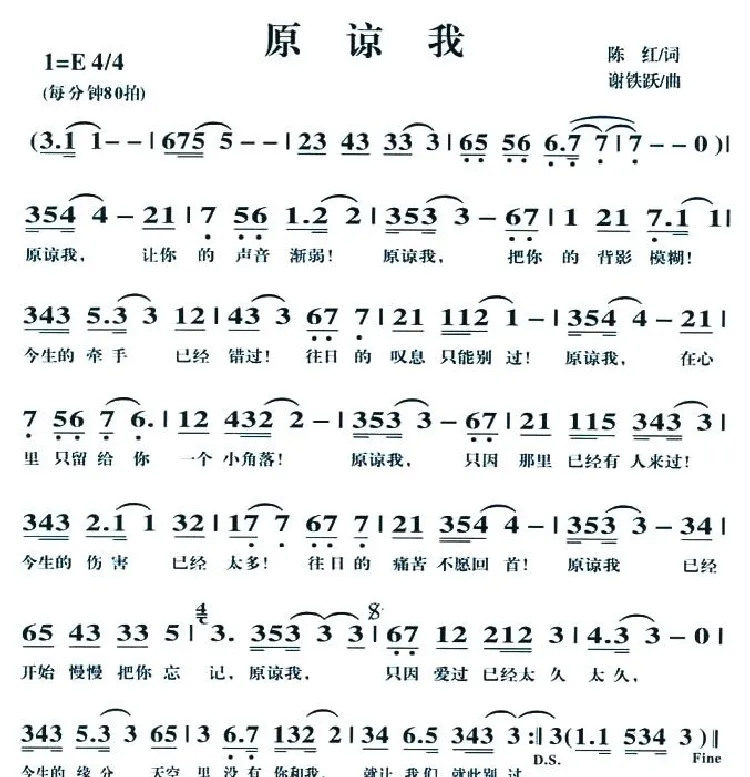 原谅我
1=E 4/4
陈红/词
(每分钟80拍)
谢铁跃/曲
(3.1 1--|675 5--|23 43 33 3|65 56 6.7 7|7--0)|
354 4-21|7 56 1.2 2|353 3-67|1 21 7.1 1|
原谅我, 让你的声音渐弱! 原谅我, 把你的背影模糊!
343 5.3 3 12|43 3 67 7|21 112 1-|354 4-21|
今生的牵手 已经错过! 往日的叹息只能别过! 原谅我, 在心
7 56 7 6.|12 432 2-|353 3-67|21 115 343 3|
里只留给你 一个小角落! 原谅我, 只因那里已经有人来过!
343 2.1 1 32|17 7 67 7|21 354 4-|353 3-34|
今生的伤害 已经太多! 往日的痛苦不愿回首! 原谅我 已经
65 43 33 5|3. 353 3 3|67 12 212 3|4.3 3-0|
开始慢慢把你忘记,原谅我, 只因爱过已经太久太久,
343 5.3 3 65|3 6.7 132 2|34 6.5 343 3:‖3(1.1 534 3)‖
D.S. Fine
今生的缘分 天空里没有你和我, 就让我们就此别过